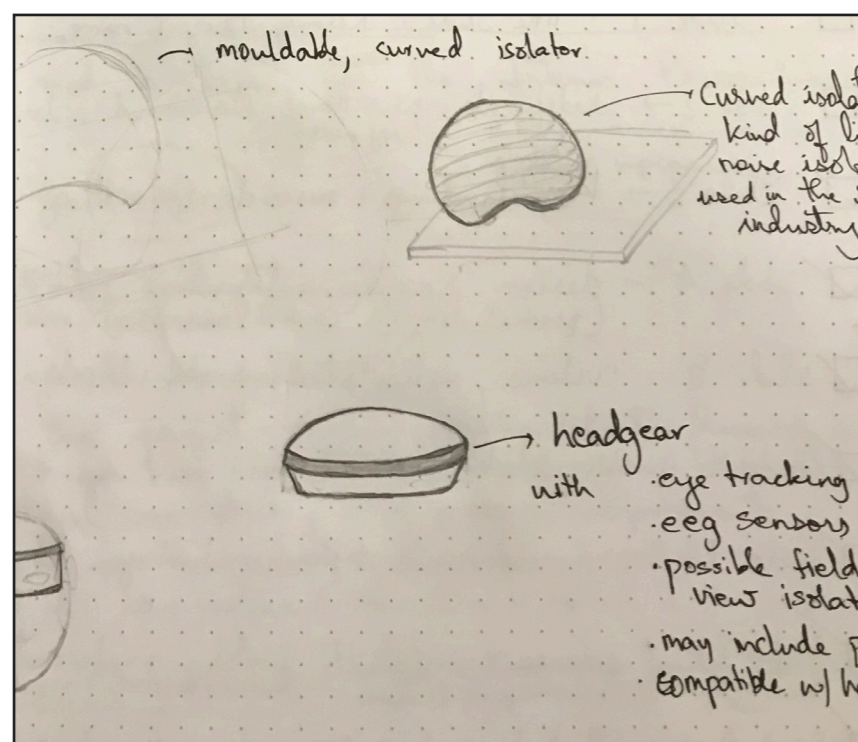 mouldable, curved isolator
Curved isola
kind of li
noise isol
used in the
industry
headgear
with
· eye tracking
· eeg sensors
· possible field
view isolat
· may include p
· compatible w/ h